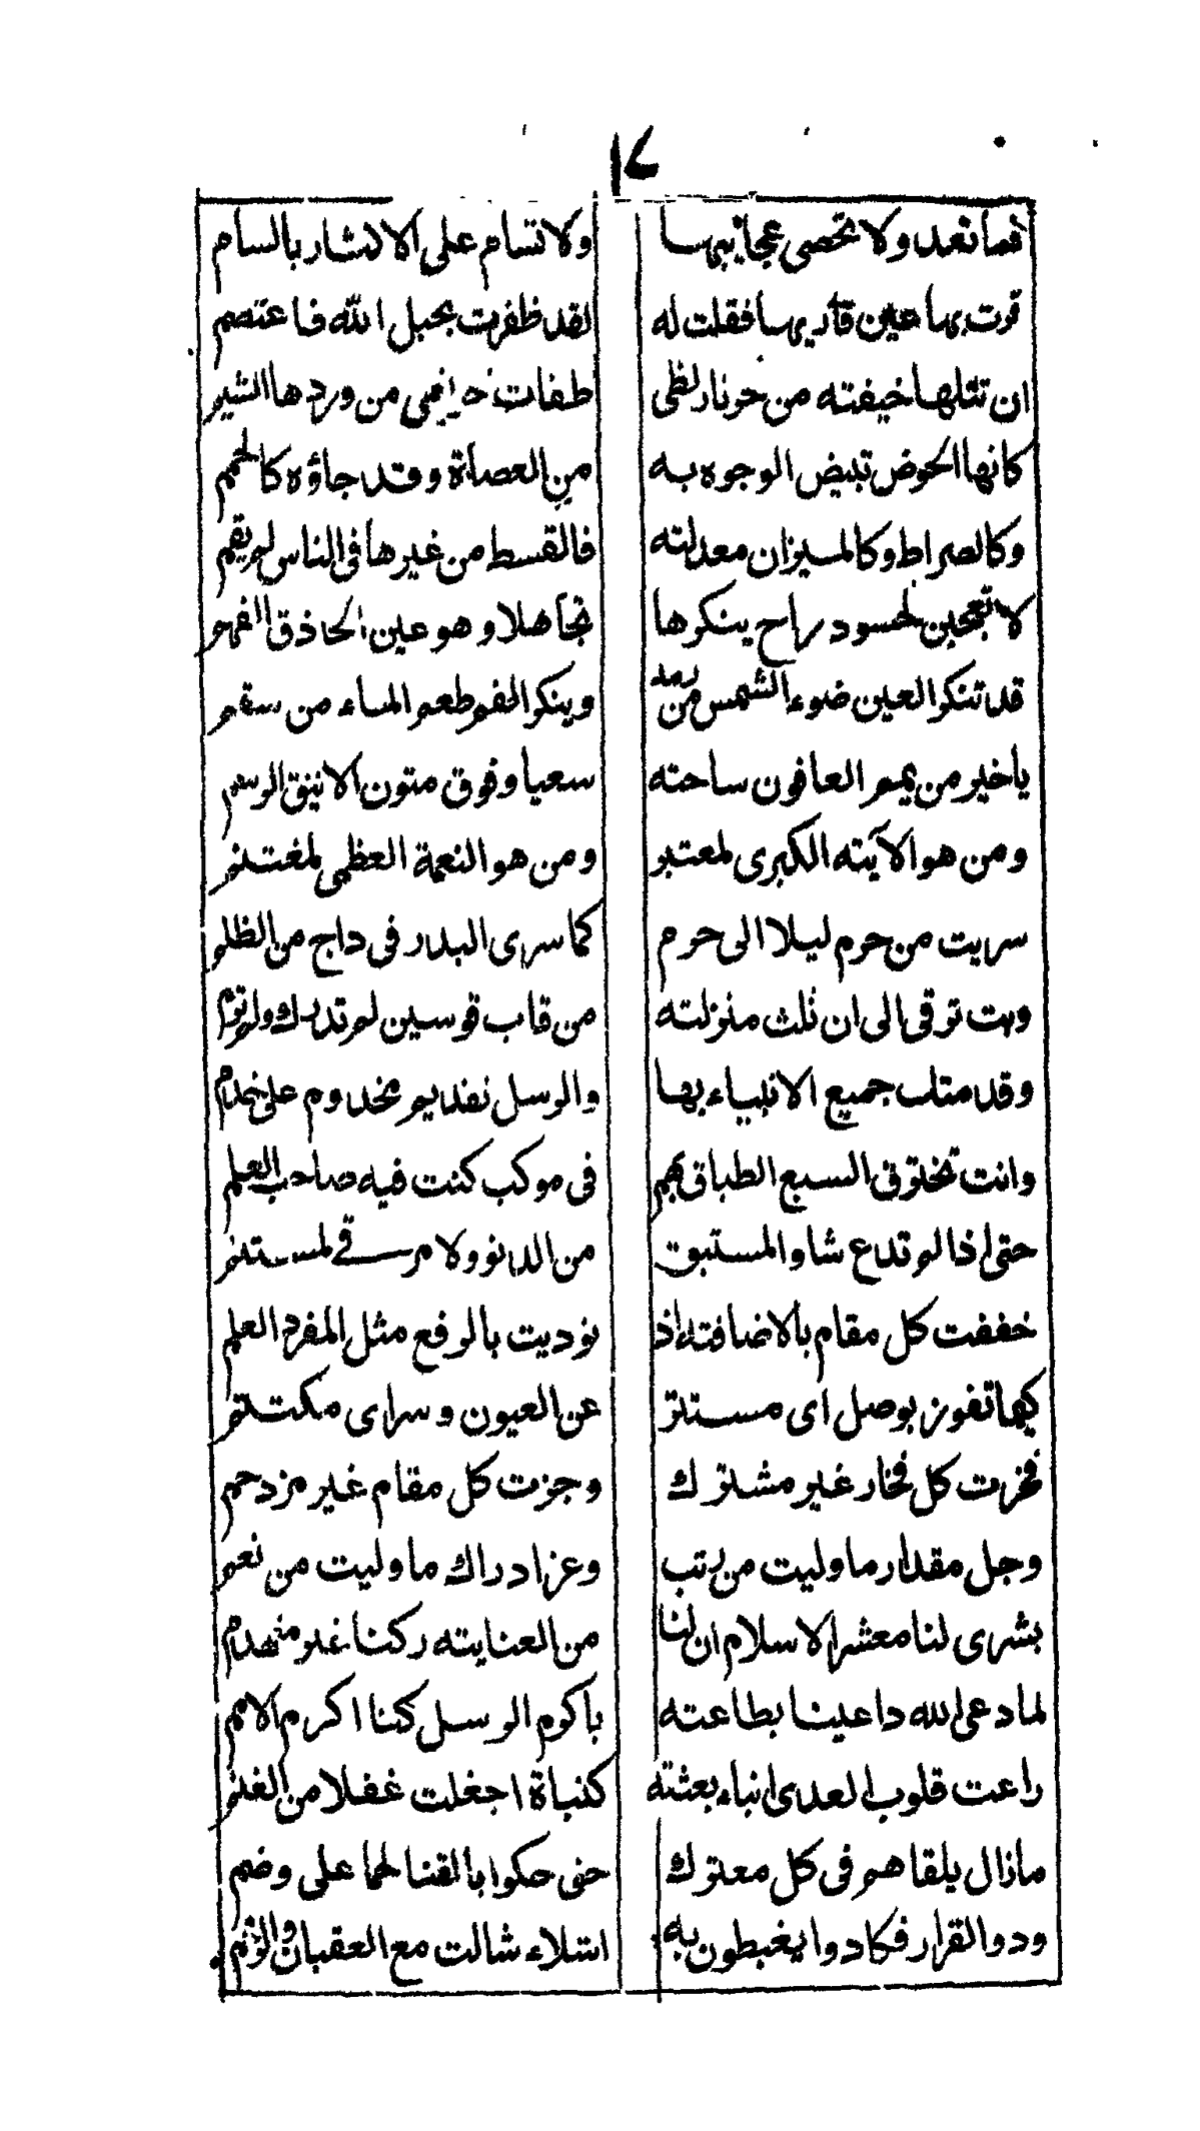 ١٧
فما تعد ولا تحصى عجائبها ولا تسام على الاكثار بالسام
قرت بها عين قاريها فقلت له لقد ظفرت بحبل الله فاعتصم
ان تتلها خيفته من حر نار لظى طفات من وردها الشبم
كانها الحوض تبيض الوجوه به من العصاة وقد جاؤه كالحمم
وكالصراط وكالميزان معدلته فالقسط من غيرها فى الناس لم يقم
لا تعجبن لحسود راح ينكرها تجاهلا وهو عين الحاذق الفهم
قد تنكر العين ضوء الشمس من رمد وينكر الفم طعم الماء من سقم
يا خير من يمم العافون ساحته سعيا وفوق متون الانيق الرسم
ومن هو الآيته الكبرى لمعتبر ومن هو النعمة العظمى لمغتنم
سريت من حرم ليلا الى حرم كما سرى البدر فى داج من الظلم
وبت ترقى الى ان نلت منزلته من قاب قوسين لم تدرك ولم ترم
وقدمتك جميع الانبياء بها والرسل تقديم مخدوم على خدم
وانت تخترق السبع الطباق بهم فى موكب كنت فيه صاحب العلم
حتى اذا لم تدع شاوا لمستبق من الدنو ولا مرقى لمستنم
خفضت كل مقام بالاضافته اذ نوديت بالرفع مثل المفرد العلم
كيما تفوز بوصل اى مستتر عن العيون وسر اى مكتتم
فحزت كل فخار غير مشترك وجزت كل مقام غير مزدحم
وجل مقدار ما وليت من رتب وعز ادراك ما وليت من نعم
بشرى لنا معشر الاسلام ان لنا من العنايته ركنا غير منهدم
لما دعى الله داعينا بطاعته باكرم الرسل كنا اكرم الامم
راعت قلوب العدى انباء بعثته كنباة اجفلت غفلا من الغنم
مازال يلقاهم فى كل معترك حتى حكوا بالقنا لحما على وضم
ودوا القرار فكادوا يغبطون به اشلاء شالت مع العقبان والرخم